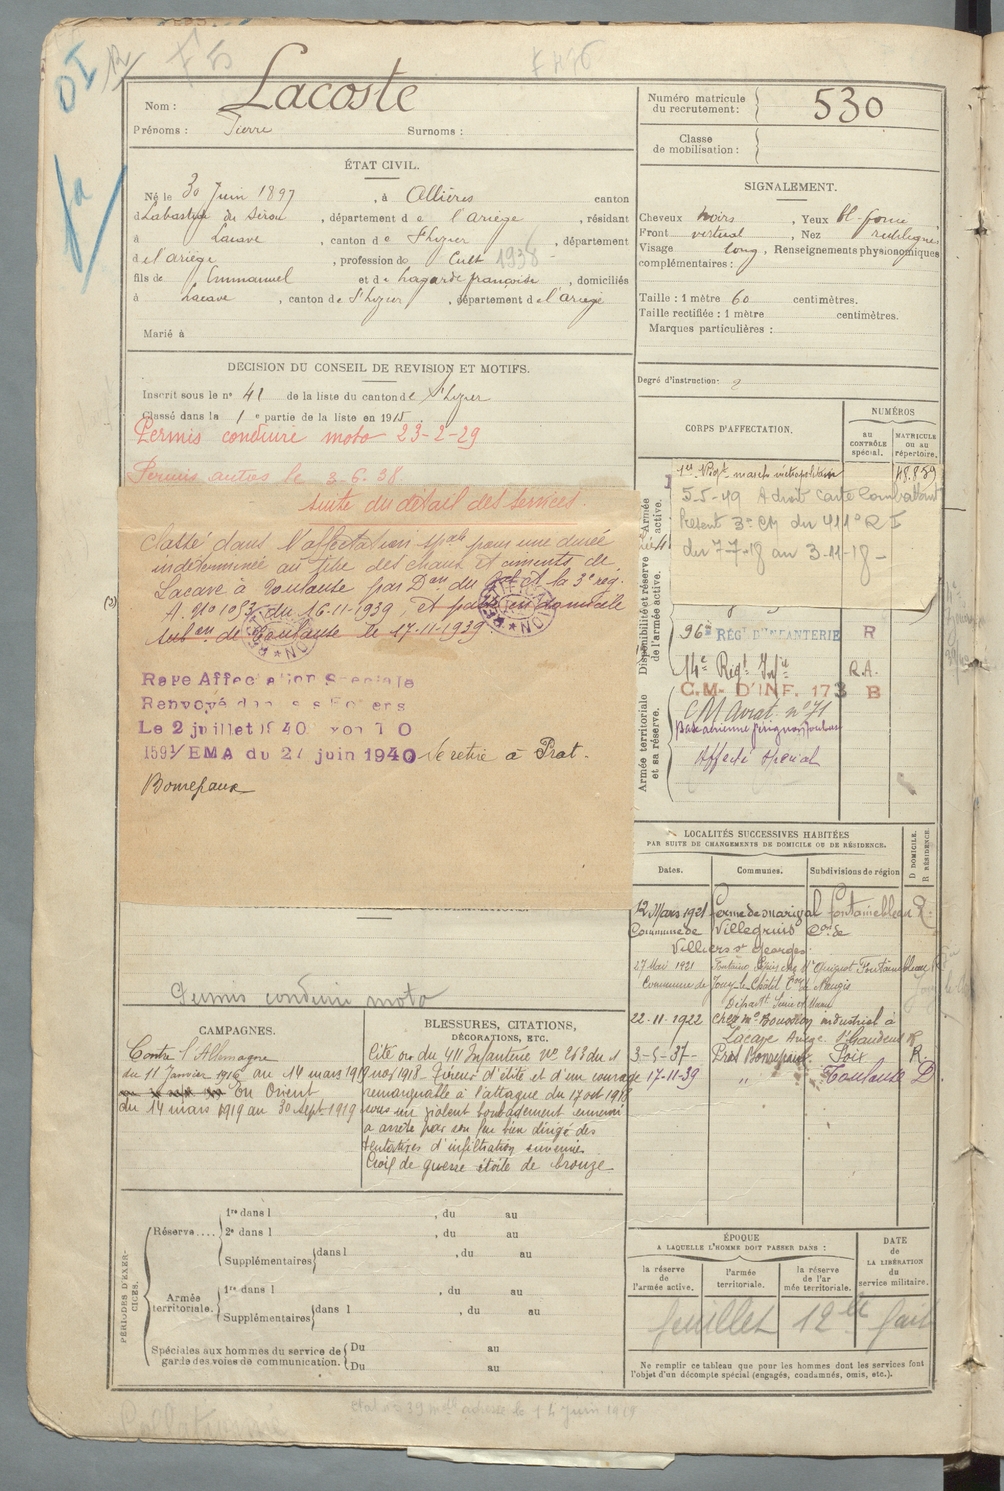 Lacoste
Nom :
Prénoms : Pierre Surnoms :
Numéro matricule du recrutement : 530
Classe de mobilisation :
ÉTAT CIVIL.
Né le 30 Juin 1897, à Allières canton
d Labastide de Sérou, département de l'Ariège, résidant
à Lacave, canton de St Lizier, département
d el'Ariège, profession de Cult 1938
fils de Emmanuel et de Lagarde françoise, domiciliés
à Lacave, canton de St Lizier, département de l'Ariège
Marié à
SIGNALEMENT.
Cheveux noirs, Yeux bl-foncé
Front vertical, Nez rectiligne
Visage long, Renseignements physionomiques
complémentaires :
Taille : 1 mètre 60 centimètres.
Taille rectifiée : 1 mètre centimètres.
Marques particulières :
DÉCISION DU CONSEIL DE REVISION ET MOTIFS.
Inscrit sous le n° 41 de la liste du canton de St Lizier
Classé dans la 1e partie de la liste en 191
Permis conduire moto 23-2-29
Permis autos le 3-6-38
Degré d'instruction : 2
CORPS D'AFFECTATION.
NUMÉROS
au CONTRÔLE spécial.
MATRICULE ou au répertoire.
suite du détail des services.
Classé dans l'affectation spale pour une durée
indéterminée au titre des chaux et ciments de
Lacave à Toulouse par Don du Gal Ct la 3e rég.
du 16-11-1939
de Toulouse le 17-11-1939
Raye Affectation Speciale
Renvoyé dans ses Foyers
Le 2 juillet 1940
EMA du 27 juin 1940 Se retire à Prat.
Bonrepaux
1er Rigt march métropolitain 48.859
5-5-49 A droit carte Combattant
Présent 3e CM du 411e R I
du 7-7-18 au 3-11-18
Armée active.
Disponibilité et réserve de l'armée active.
Armée territoriale et sa réserve.
96e RÉGt D'INFANTERIE R
14e Regt Infie R.A.
C.M. D'INF. 173 B
Affecté spécial
LOCALITÉS SUCCESSIVES HABITÉES
PAR SUITE DE CHANGEMENTS DE DOMICILE OU DE RÉSIDENCE.
Dates. Communes. Subdivisions de région
D DOMICILE.
R RÉSIDENCE.
12 Mars 1921 Ferme de Marigal Fontainebleau R
Commune de Villegruis Con de
Villiers St Georges.
27 Mai 1921
22-11-1922 chez Mr industriel à
Lacave Ariège St Gaudens R
3-5-37- Prat Bonrepaux Foix R.
17-11-39 " Toulouse D
Permis conduire moto
CAMPAGNES.
Contre l'Allemagne
du 11 Janvier 1916 au 14 mars 1919
En Orient
du 14 mars 1919 au 30 Sept 1919
BLESSURES, CITATIONS,
DÉCORATIONS, ETC.
Cité o du 411 Infanterie No 253 du 1
nov 1918 Tireur d'élite et d'un courage
remarquable à l'attaque du 17 oct 1918
sous un violent bombardement ennemi
a arrêté par son feu bien dirigé des
tentatives d'infiltration ennemie
Croix de guerre étoile de bronze
PÉRIODES D'EXERCICES.
Réserve.... 1re dans l , du au
2e dans l , du au
Supplémentaires dans l , du au
Armée territoriale. 1re dans l , du au
Supplémentaires dans l , du au
Spéciales aux hommes du service de garde des voies de communication. Du au
Du au
ÉPOQUE
A LAQUELLE L'HOMME DOIT PASSER DANS :
la réserve de l'armée active.
l'armée territoriale.
la réserve de l'armée territoriale.
DATE de LA LIBÉRATION du service militaire.
feuillet 12
Ne remplir ce tableau que pour les hommes dont les services font
l'objet d'un décompte spécial (engagés, condamnés, omis, etc.).